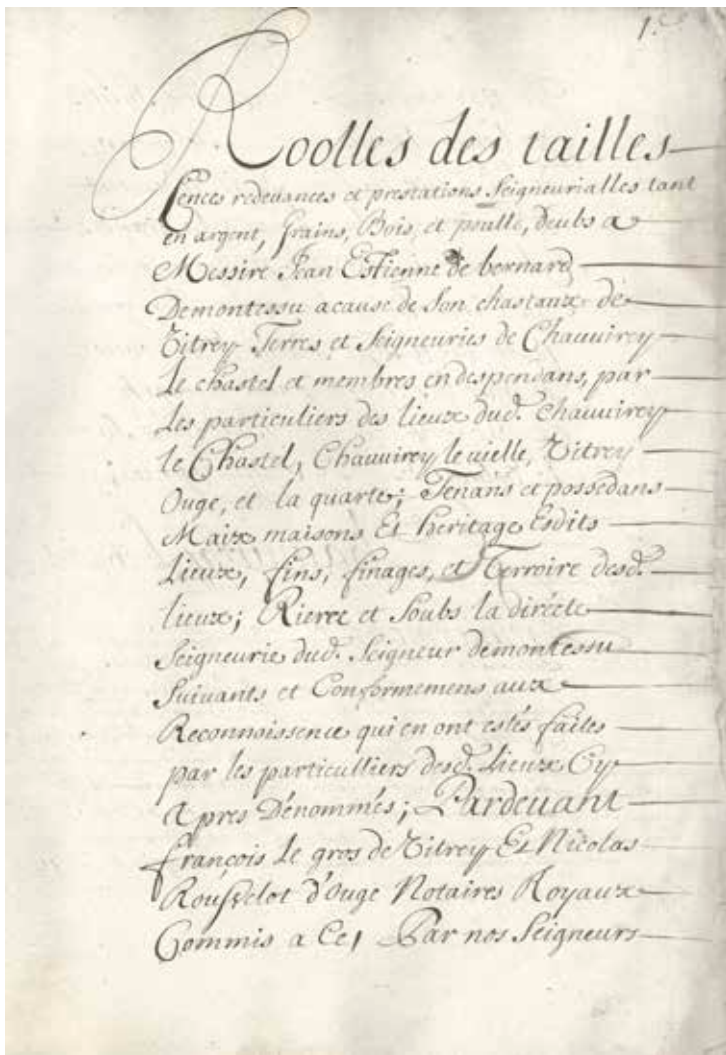 1.
Roolles des tailles
Cences redevances et prestations Seigneurialles tant
en argent, grains, Bois, et poulle, deubs a
Messire Jean Estienne de bernard
Demontessu acause de Son chastaux de
Vitrey Terres et Seigneuries de Chauvirey
Le chastel et membres endespendans, par
Les particuliers des lieux dud. Chauvirey
le Chastel, Chauvirey levielle, Vitrey
Ouge, et la quarte; Tenans et possedans
Maix maisons Et heritage Esdits
Lieux, fins, finages, et Terroire desd.
lieux; Rieree et Soubs la dirécte
Seigneurie dud. Seigneur demontessu
Suivants et Conformemens aux
Reconnoissence qui en ont estés faites
par les particulliers desd. Lieux Cy
Apres Dénommés; Pardevant
françois Le gros de Vitrey Et Nicolas
Rousselot d'Ouge Notaires Royaux
Commis a Ce, Par nos Seigneurs